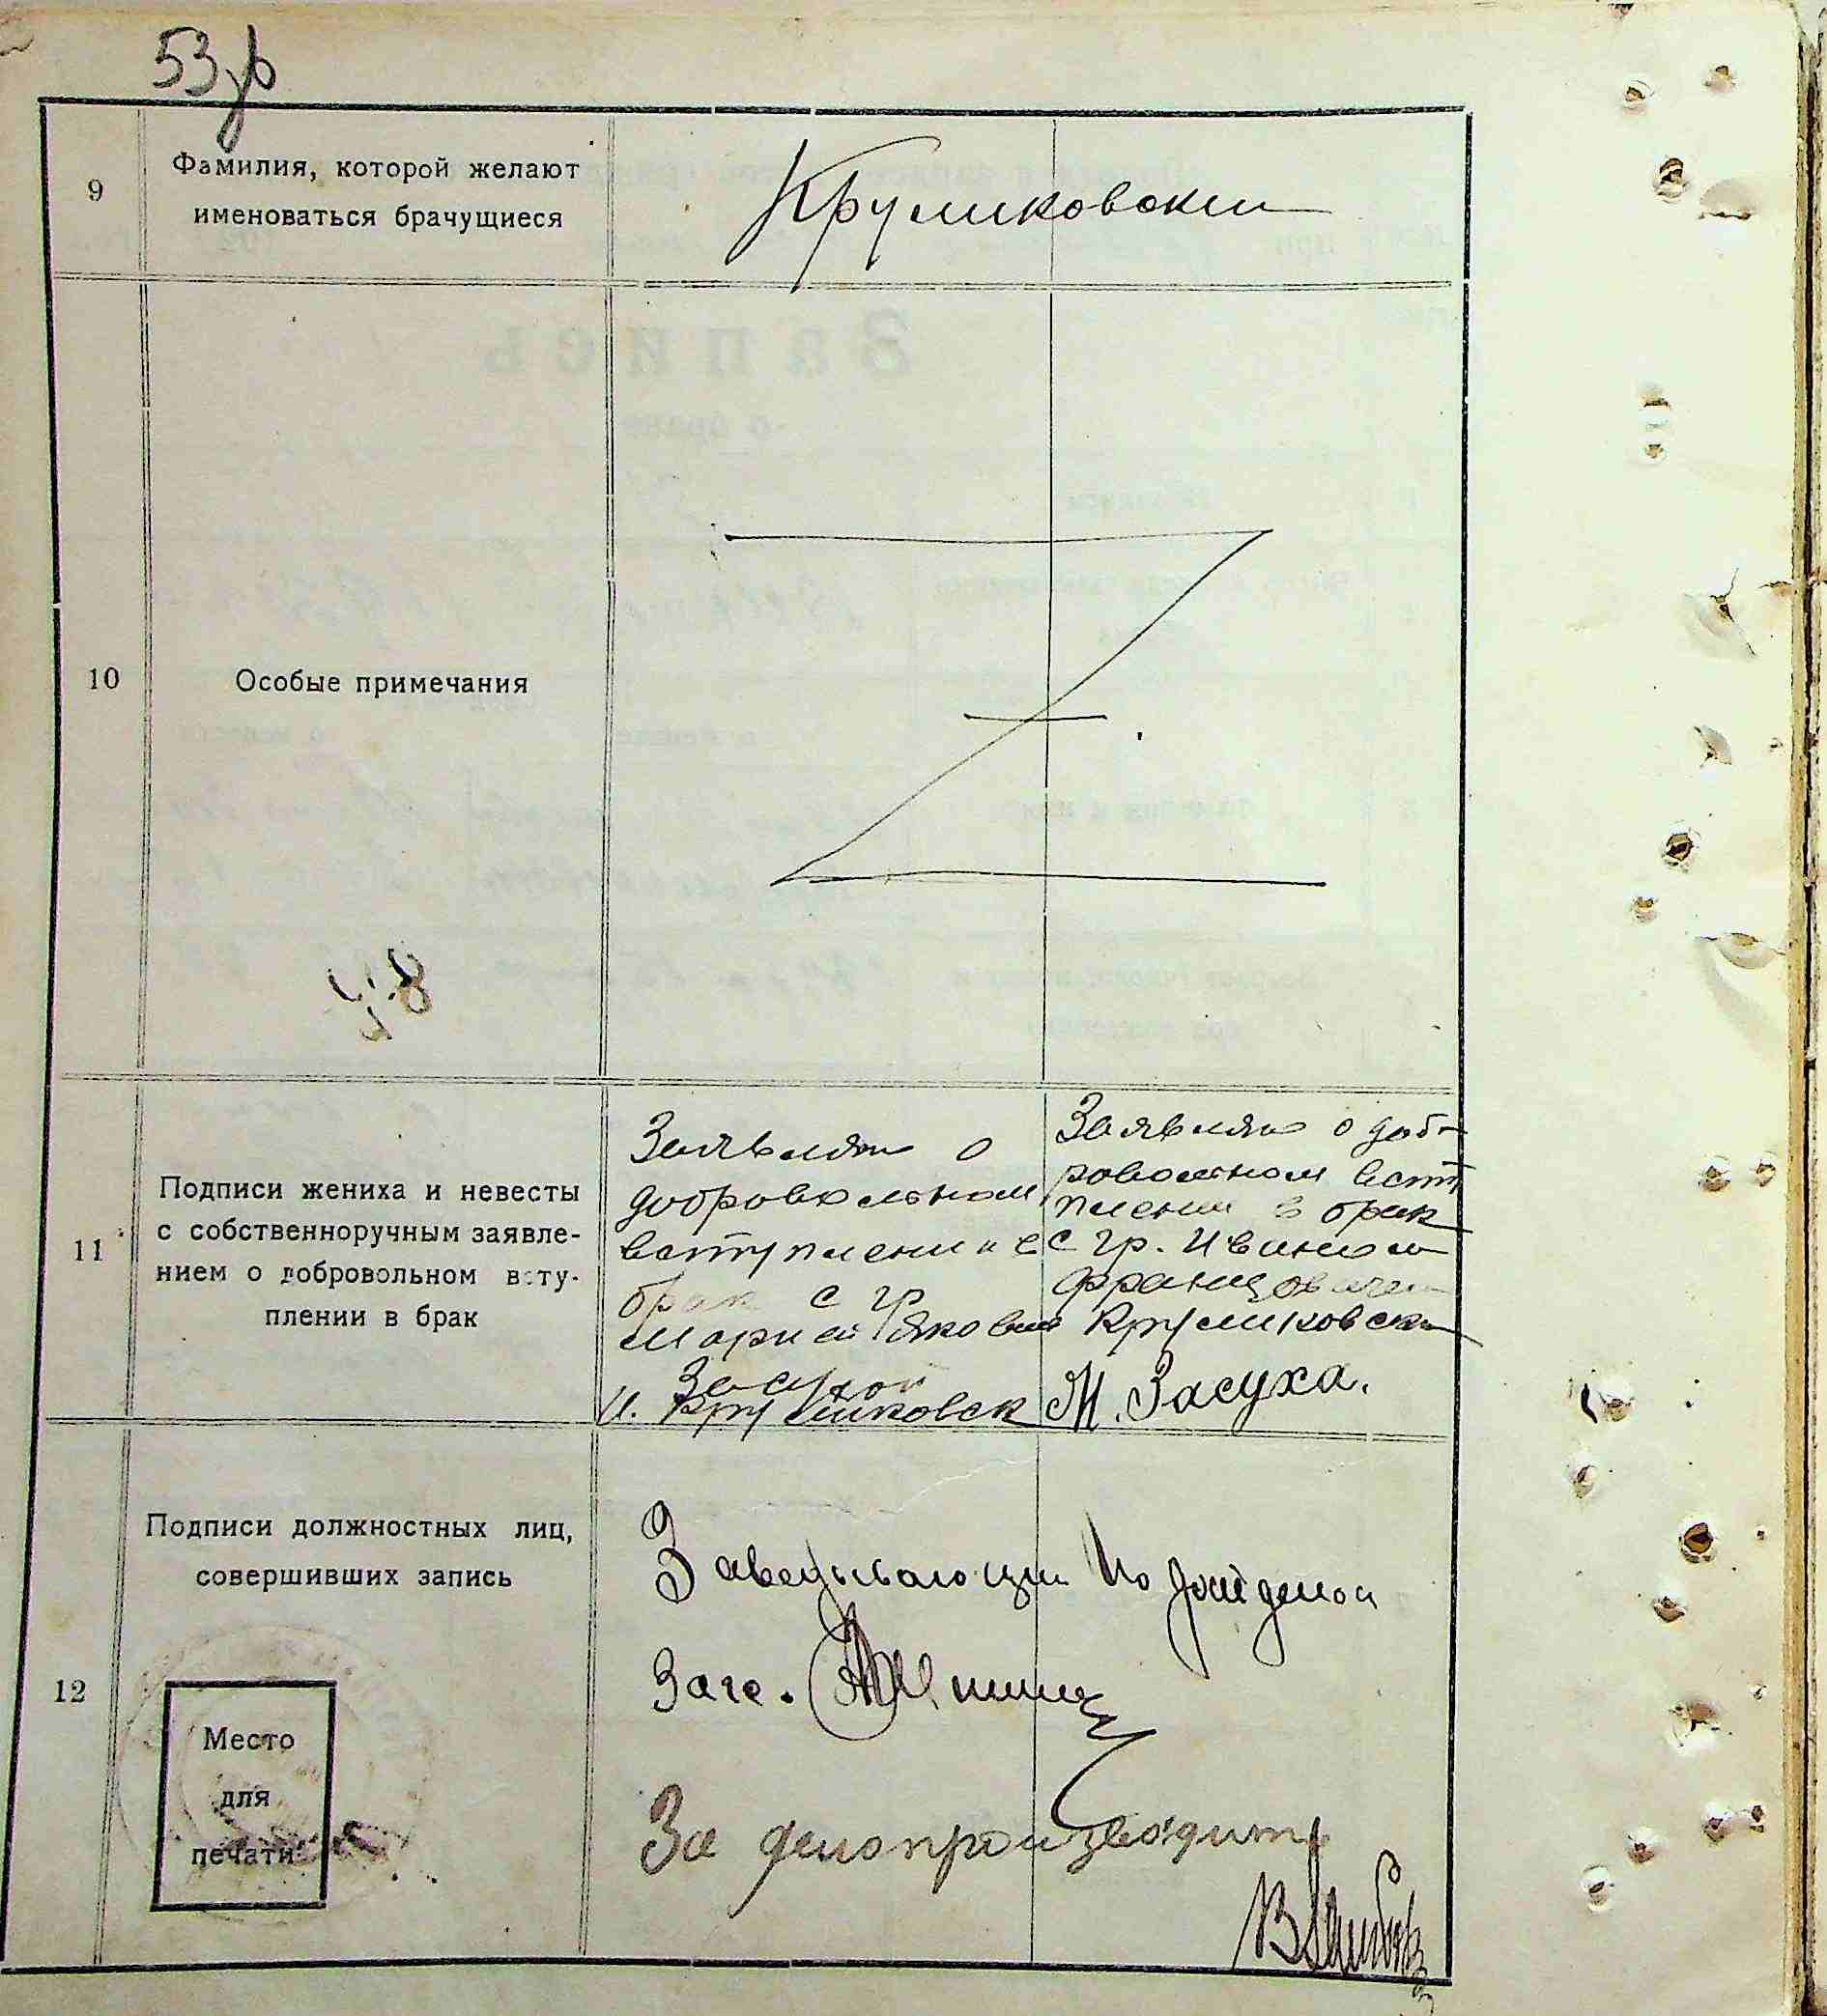 53 об
9
Фамилия, которой желают
именоваться брачущиеся
Крумиковский
10
Особые примечания
11
Подписи жениха и невесты
с собственноручным заявле-
нием о добровольном всту-
плении в брак
Заявляю о
добровольном
вступлении в
брак с гр
Марией Яковл
Засухой
И. Крумиковск
Заявляю о доб-
ровольном вст
плении в брак
с гр. Иваном
Францовичем
Крумиковским
М. Засуха.
12
Подписи должностных лиц,
совершивших запись
Место
для
печати
Заведывающий
Загс.
За делопроизводит